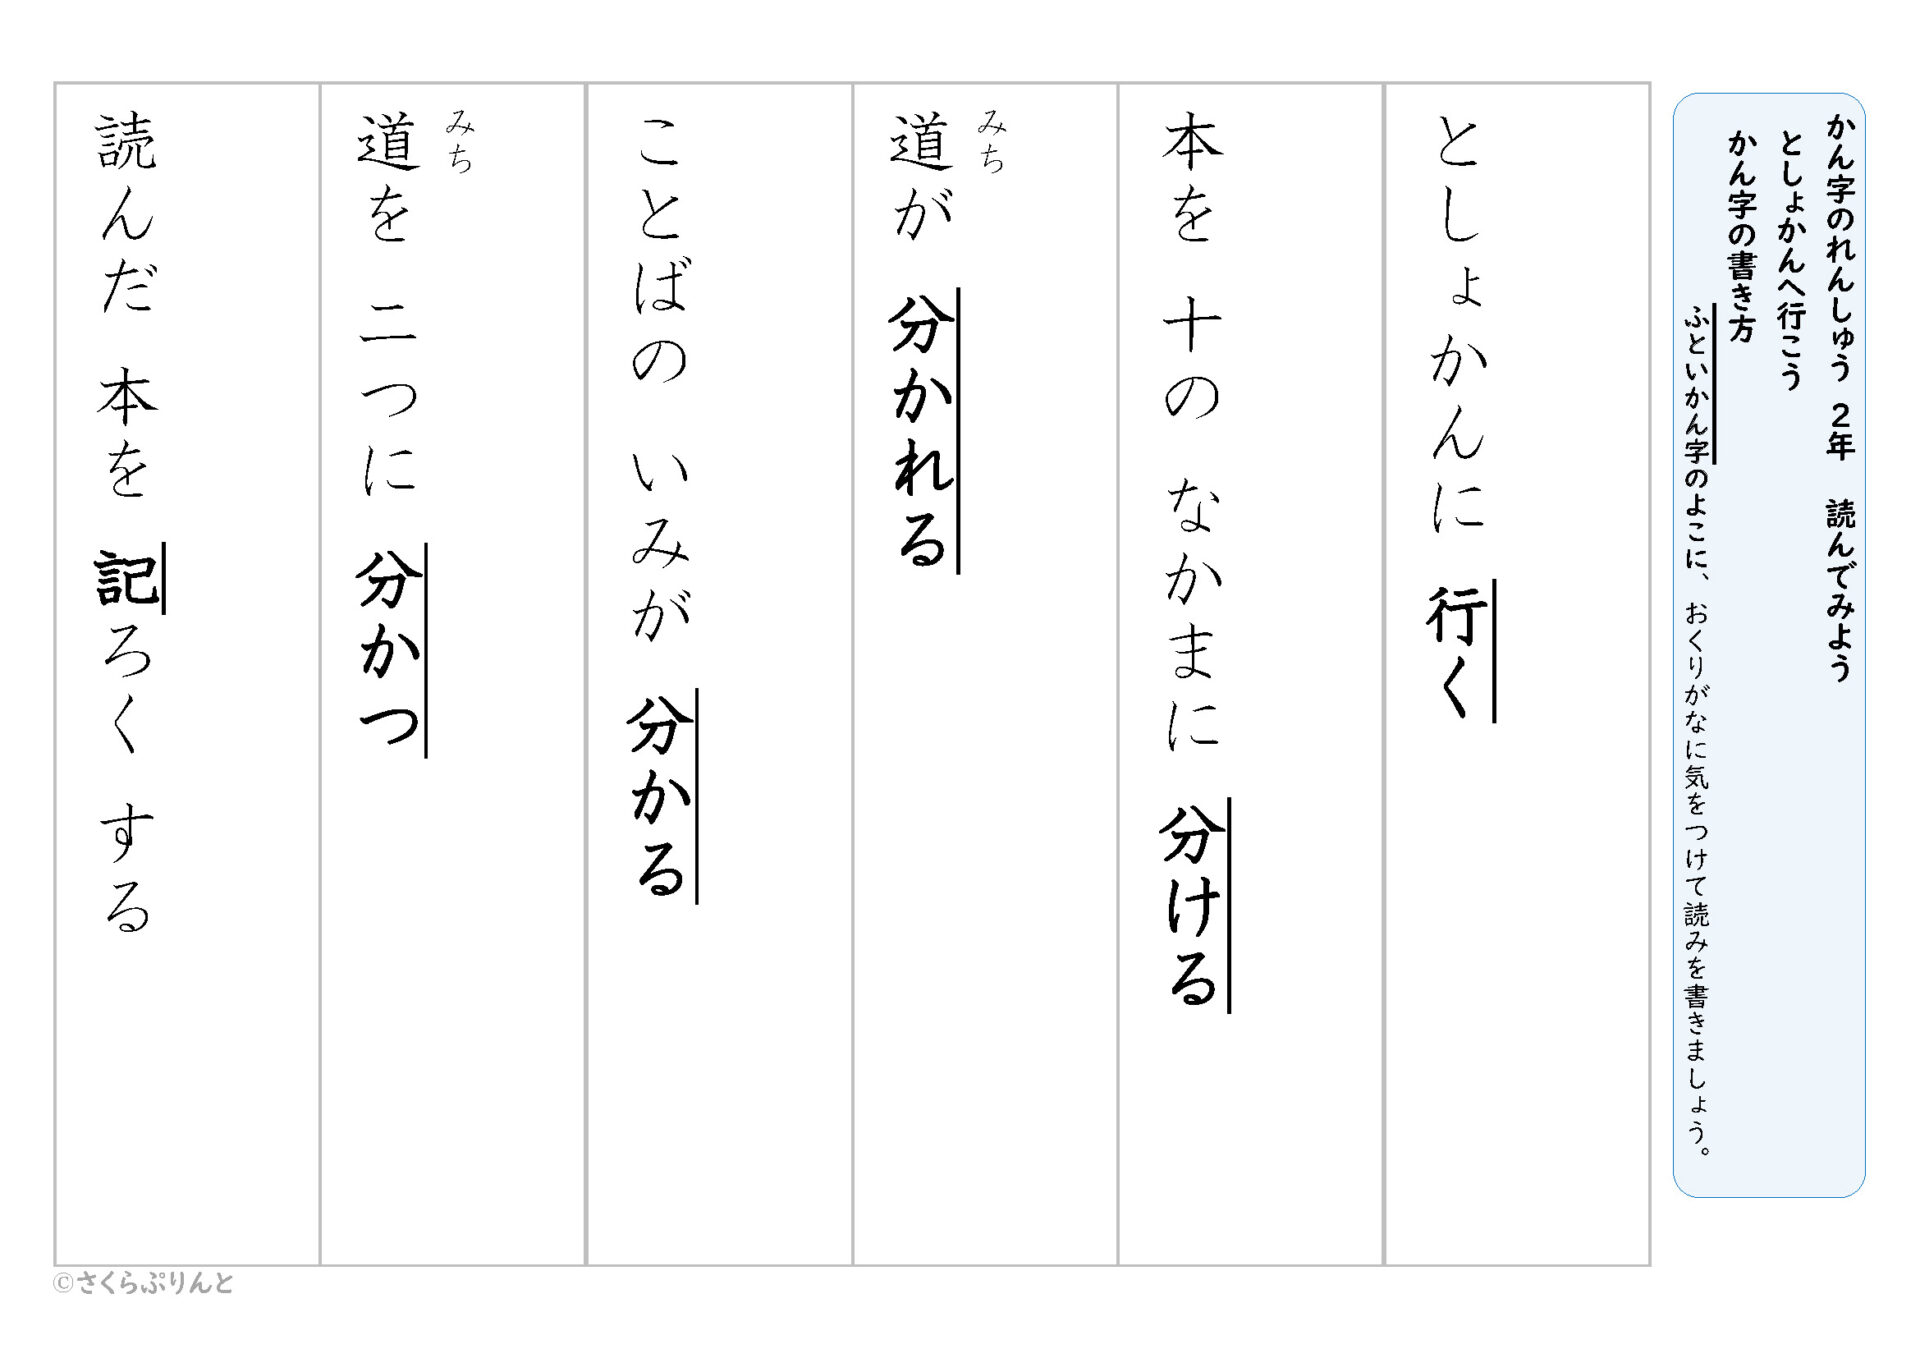 かん字のれんしゅう ２年　読んでみよう
としょかんへ行こう
かん字の書き方
ふといかん字のよこに、おくりがなに気をつけて読みを書きましょう。
としょかんに 行く
本を 十の なかまに 分ける
みち
道が 分かれる
ことばの いみが 分かる
みち
道を 二つに 分かつ
読んだ 本を 記ろく する
©さくらぷりんと